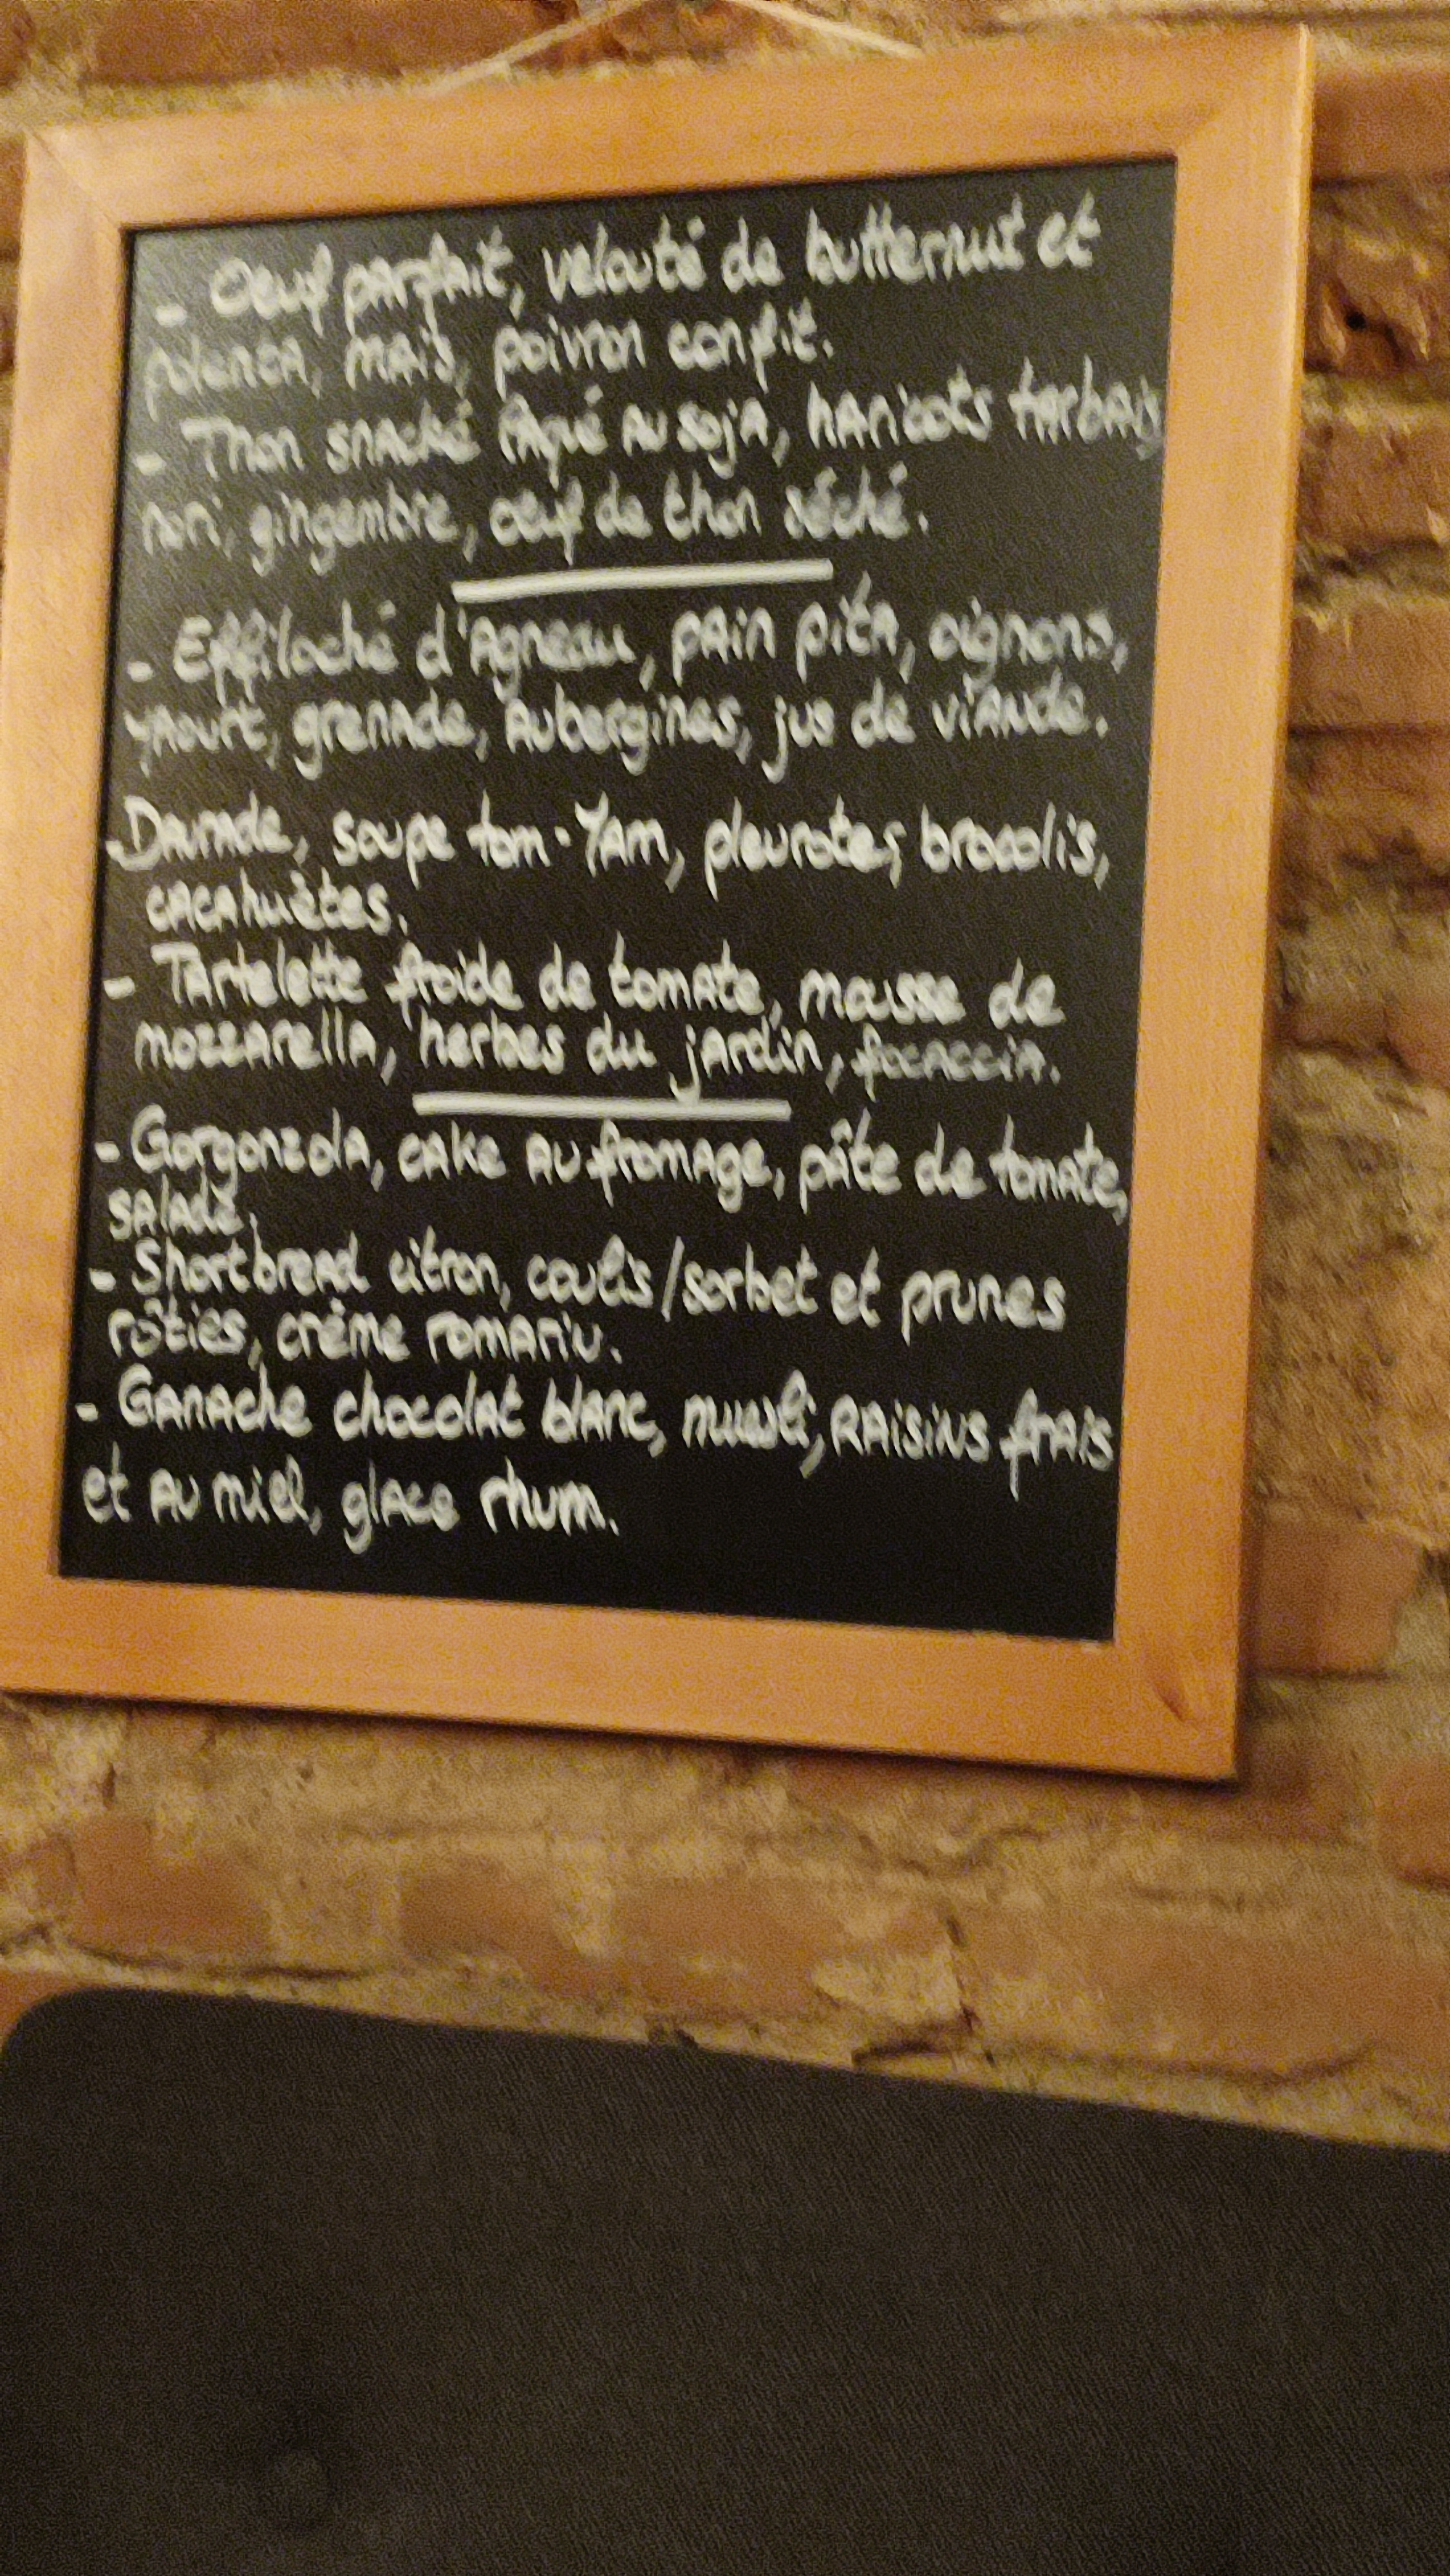 - Oeuf parfait, velouté de butternut et
polenta, maïs, poivron confit.
- Thon snacké laqué au soja, haricots tarbais
nori, gingembre, oeuf de thon séché.
- Effiloché d'agneau, pain pita, oignons,
yaourt, grenade, aubergines, jus de viande.
- Daurade, soupe tom-yam, pleurotes, brocolis,
cacahuètes.
- Tartelette froide de tomate, mousse de
mozzarella, herbes du jardin, focaccia.
- Gorgonzola, cake au fromage, pâte de tomate,
salade.
- Shortbread citron, coulis/sorbet et prunes
rôties, crème romarin.
- Ganache chocolat blanc, muesli, raisins frais
et au miel, glace rhum.